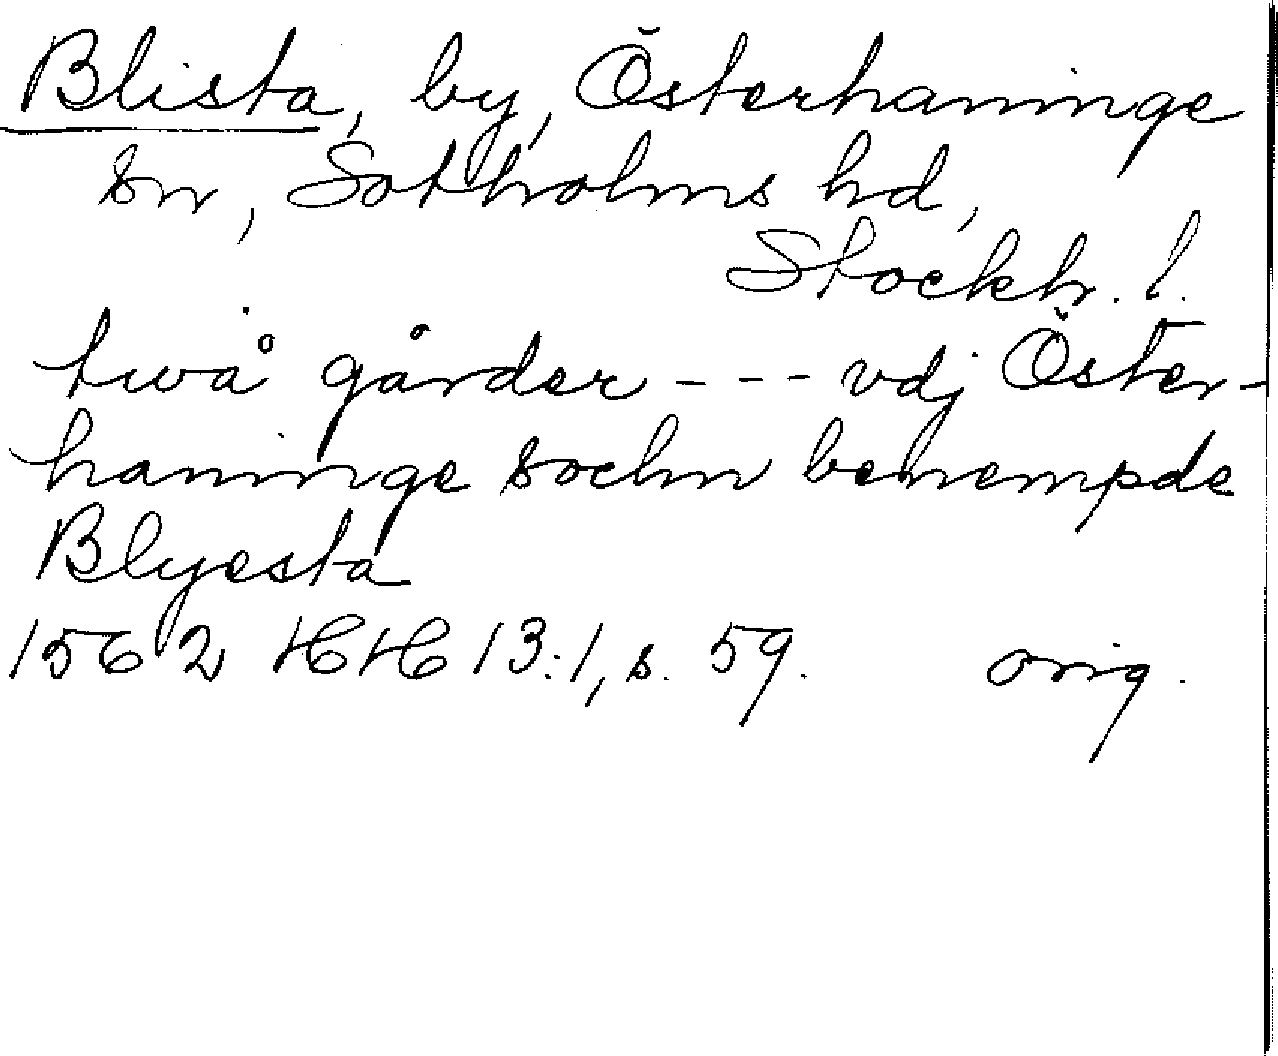 Blista, by, Österhaninge
sn, Sotholms hd,
Stockh. l.
twå gårder - - - vdj Öster-
haninge sochn benempde
Blyesta
1562 HH 13:1, s. 59. orig.